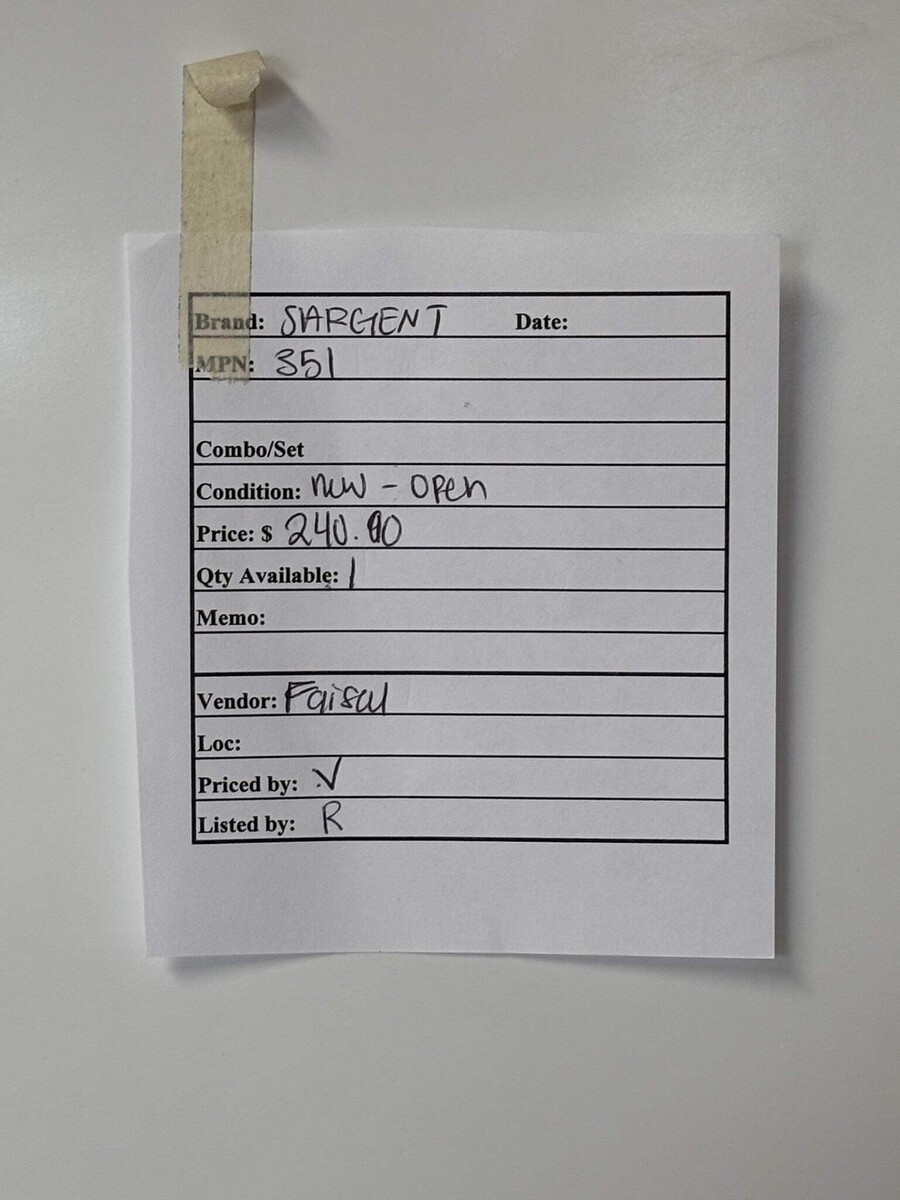 Brand: SARGENT Date:
MPN: 351
Combo/Set
Condition: new - open
Price: $ 240.00
Qty Available: 1
Memo:
Vendor: Faisal
Loc:
Priced by: V
Listed by: R